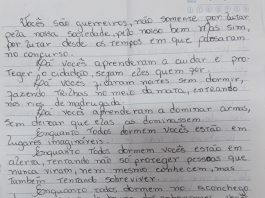 Vocês são guerreiros, não somente por lutar
pela nossa sociedade, pelo nosso bem mas sim,
por lutar desde os tempos em que passaram
no concurso.
Lá vocês aprenderam a cuidar e pro-
Teger o cidadão, sejam eles quem for.
Lá vocês ficaram noites sem dormir,
fazendo Trilhas no meio da mata, entrando
nos rios de madrugada.
Lá vocês aprenderam a dominar armas,
sem deixar que elas os dominassem.
Enquanto Todos dormem vocês estão em
lugares inimagináveis.
Enquanto Todos dormem vocês estão em
alerta, tentando não só proteger pessoas que
nunca viram, nem mesmo conhecem, mas
também Tentando sobreviver.
Enquanto todos dormem no aconchego